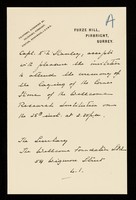 A
FURZE HILL,
PIRBRIGHT,
SURREY.
Capt. R. H. Stanley, accepts
with pleasure the invitation
to attend the ceremony of
the laying of the
Stone of the Wellcome
Research Institution on
the 25th inst at 3.15 pm.
The Secretary
The Wellcome Foundation Ltd
54 Wigmore Street
W.1.